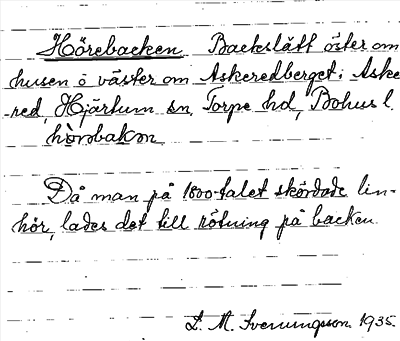 Hörebacken Backslätt öster om
husen o väster om Askeredberget i Aske-
red, Hjärtum sn, Torpe hd, Bohus l.
hörəbakən
Då man på 1800-talet skördade lin-
hör, lades det till rötning på backen.
L. M. Svenungsson 1935.